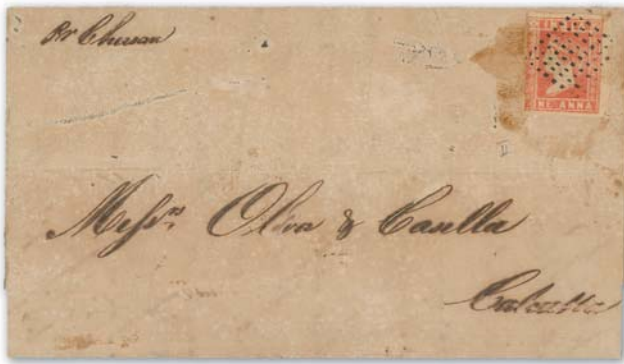 Pr Chusan
INDIA
NE ANNA
II
Messrs Oliva & Casella
Calcutta